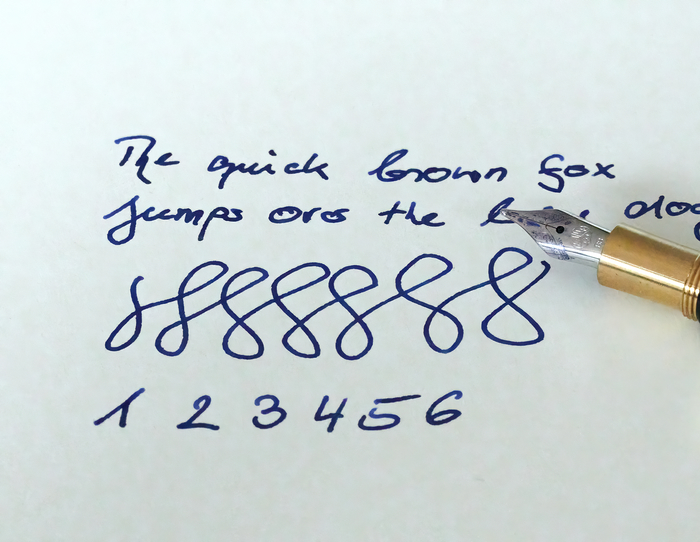 The quick brown fox
jumps over the dog
1 2 3 4 5 6